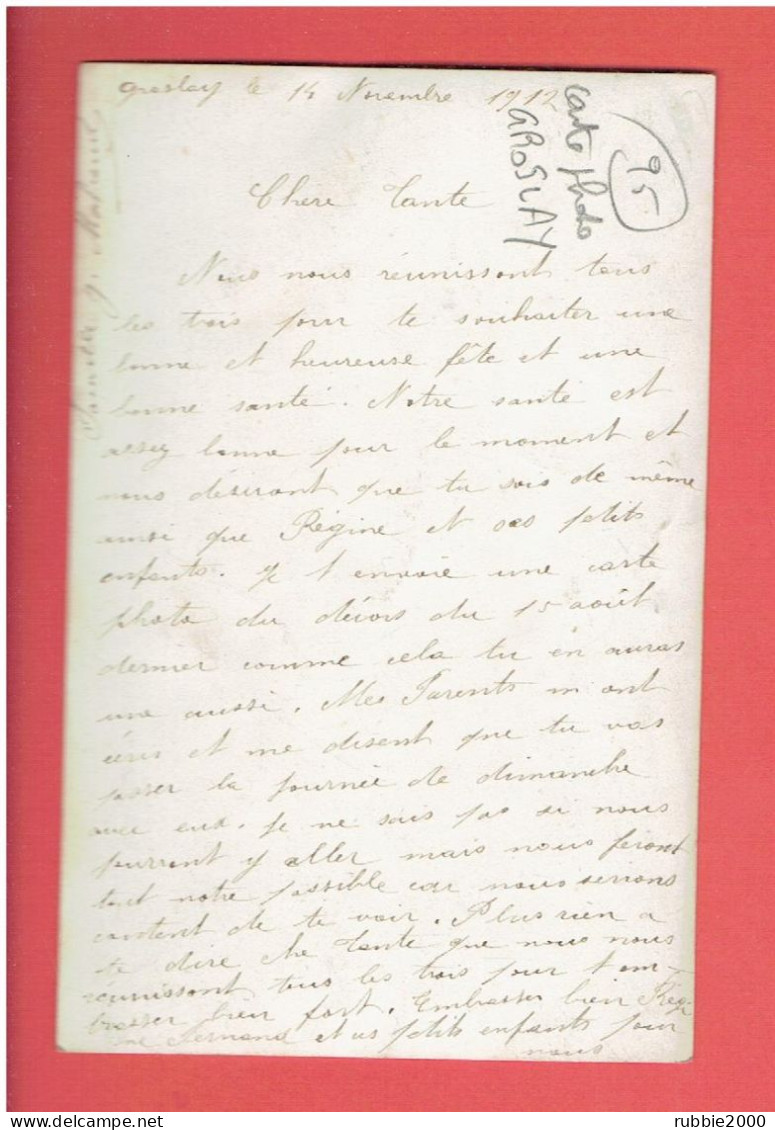 Groslay le 14 Novembre 1912
carte photo
GROSLAY
95
Chère Tante
Nous nous réunissont tous
les trois pour te souhaiter une
bonne et heureuse fête et une
bonne santé. Notre santé est
assez bonne pour le moment et
nous désiront que tu sois de même
ainsi que Régine et ses petits
enfants. Je t envoie une carte
photo du décors du 15 août
dernier comme cela tu en auras
une aussi. Mes Parents m ont
écris et me disent que tu vas
passer la journée de dimanche
avec eux. Je ne sais pas si nous
pourront y aller mais nous feront
tout notre possible car nous serions
content de te voir. Plus rien a
te dire che Tante que nous nous
réunissont tous les trois pour t em-
brasser bien fort. Embrasser bien Régi
ne Fernand et ses petits enfants pour
nous
rubbie2000